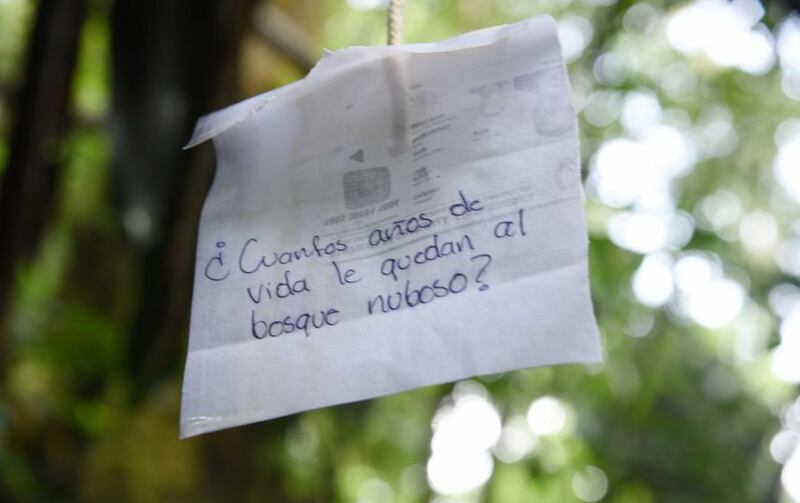 ¿Cuantos años de
vida le quedan al
bosque nuboso?